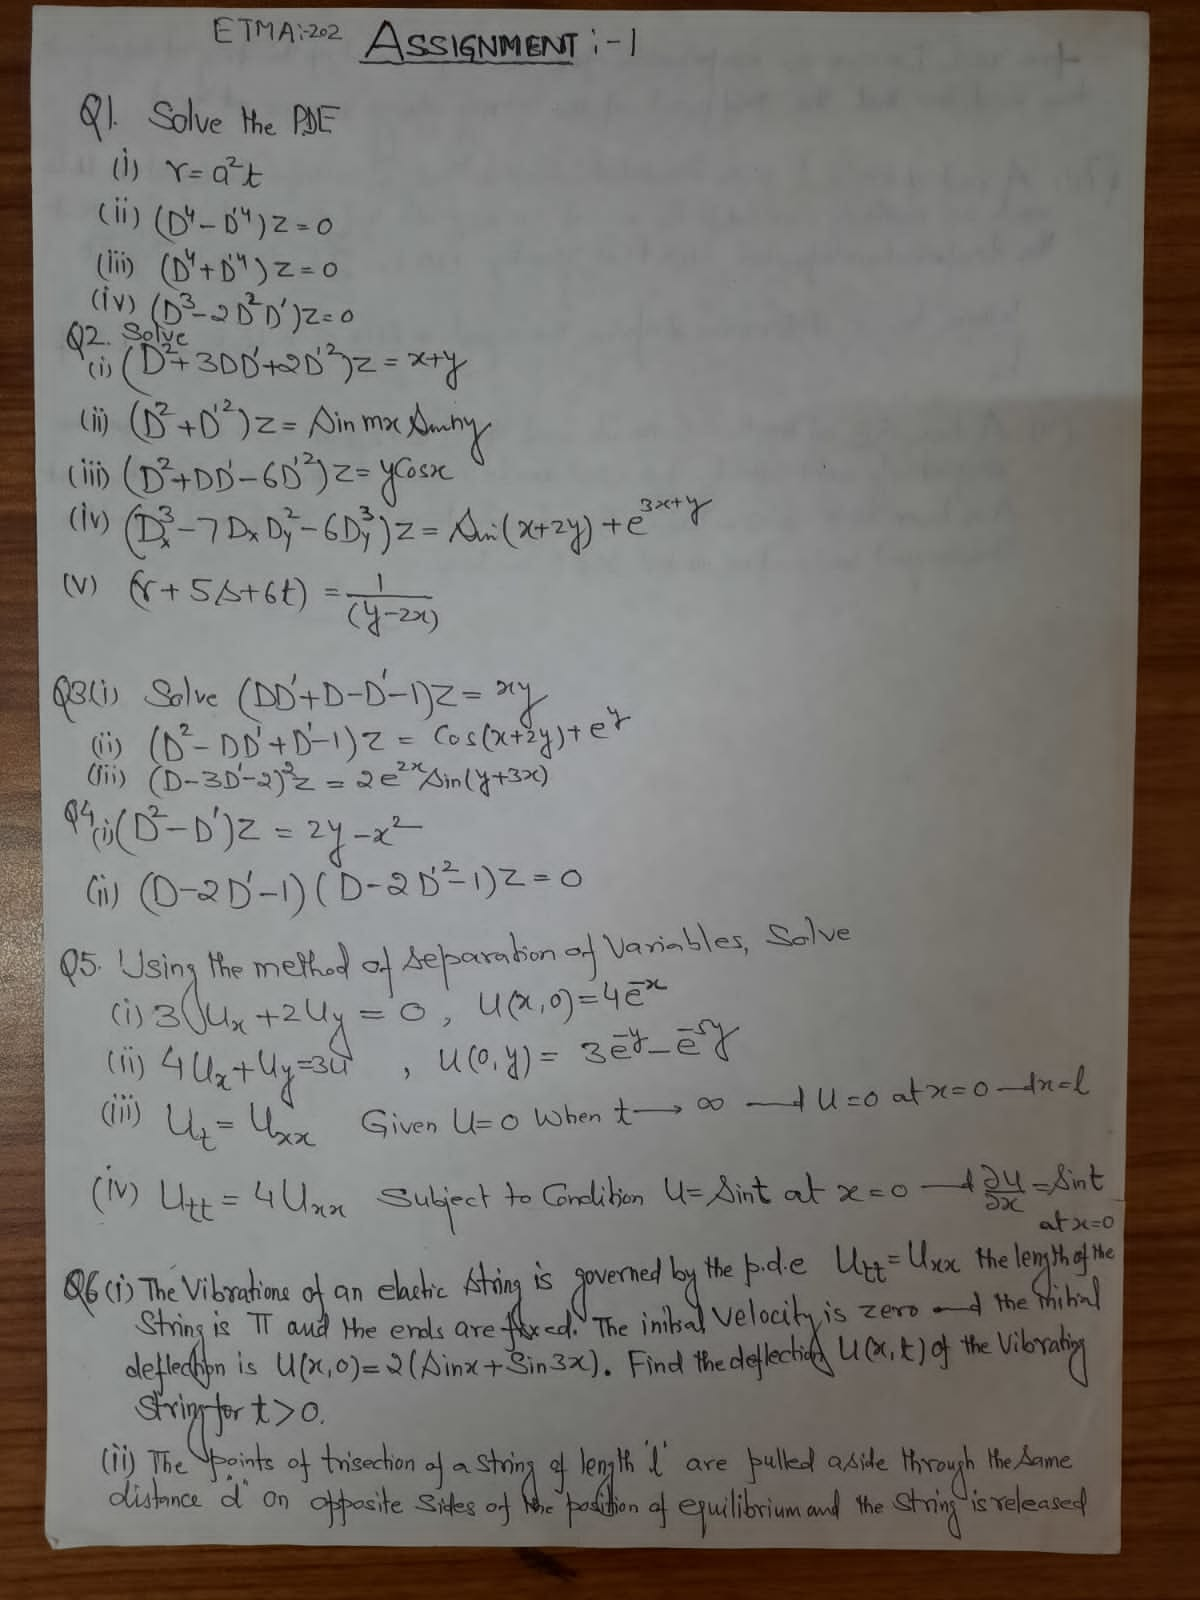 ETMA:-202 ASSIGNMENT :-1
Q1. Solve the PDE
(i) r=a²t
(ii) (D⁴-D'⁴)z=0
(iii) (D⁴+D'⁴)z=0
(iv) (D³-2D²D')z=0
Q2. Solve
(i) (D²+3DD'+2D'²)z=x+y
(ii) (D²+D'²)z=Sin mx Sin ny
(iii) (D²+DD'-6D'²)z=yCosx
(iv) (Dₓ³-7DₓD_y²-6D_y³)z=Sin(x+2y)+e^{3x+y}
(v) (r+5s+6t) = 1/(y-2x)
Q3(i) Solve (DD'+D-D'-1)z=xy
(ii) (D²-DD'+D'-1)z = Cos(x+2y)+e^y
(iii) (D-3D'-2)²z = 2e^{2x}Sin(y+3x)
Q4(i) (D²-D')z = 2y-x²
(ii) (D-2D'-1)(D-2D'²-1)z=0
Q5. Using the method of separation of Variables, Solve
(i) 3Uₓ+2U_y=0, U(x,0)=4e^{-x}
(ii) 4Uₓ+U_y=3U, U(0,y)= 3e^{-y}-e^{-5y}
(iii) U_t=Uₓₓ Given U=0 When t→∞ and U=0 at x=0 and x=l
(iv) U_tt=4Uₓₓ Subject to Condition U=Sint at x=0 and ∂U/∂x=Sint
at x=0
Q6(i) The Vibrations of an elastic string is governed by the p.d.e U_tt=Uₓₓ the length of the
String is π and the ends are fixed. The initial velocity is zero and the initial
deflection is U(x,0)=2(Sinx+Sin3x). Find the deflection U(x,t) of the Vibrating
String for t>0.
(ii) The points of trisection of a string of length 'l' are pulled aside through the same
distance 'd' on opposite sides of the position of equilibrium and the string is released